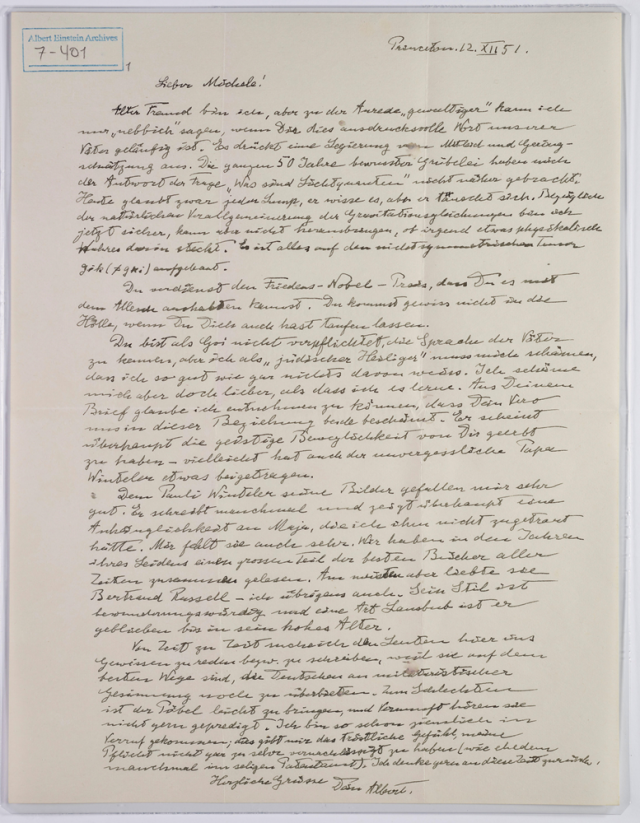 Albert Einstein Archives
7-401
1
Princeton. 12. XII 51.
Lieber Michele!
Alter Freund bin ich, aber zu der Anrede „gewaltiger“ kann ich
nur „nebbich“ sagen, wenn Dir dies ausdrucksvolle Wort unserer
Väter geläufig ist. Es drückt eine Legierung von Mitleid und Gering-
schätzung aus. Die ganzen 50 Jahre bewusster Grübelei haben mich
der Antwort der Frage „Was sind Lichtquanten“ nicht näher gebracht.
Heute glaubt zwar jeder Lump, er wisse es, aber er täuscht sich. Bezüglich
der natürlichen Verallgemeinerung der Gravitationsgleichungen bin ich
jetzt sicher, kann aber nicht herausbringen, ob irgend etwas physikalisch
Wahres darin steckt. Es ist alles auf den nichtsymmetrischen Tensor
gik (≠ gki) aufgebaut.
Du verdienst den Friedens-Nobel-Preis, dass Du es mit
dem Allem aushalten kannst. Du kommst gewiss nicht in die
Hölle, wenn Du Dich auch hast taufen lassen.
Du bist als Goi nicht verpflichtet, die Sprache der Väter
zu kennen, aber ich als „jüdischer Heiliger“ muss mich schämen,
dass ich so gut wie gar nichts davon weiss. Ich schäme
mich aber doch lieber, als dass ich es lerne. Aus Deinem
Brief glaube ich entnehmen zu können, dass Dein Vero
uns in dieser Beziehung beide beschämt. Er scheint
überhaupt die geistige Beweglichkeit von Dir geerbt
zu haben – vielleicht hat auch der unvergessliche Papa
Winteler etwas beigetragen.
Dem Pauli Winteler seine Bilder gefallen mir sehr
gut. Er schreibt manchmal und zeigt überhaupt eine
Anhänglichkeit an Maja, die ich ihm nicht zugetraut
hätte. Mir fehlt sie auch sehr. Wir haben in den Jahren
ihres Leidens einen grossen Teil der besten Bücher aller
Zeiten zusammen gelesen. Am meisten aber liebte sie
Bertrand Russell – ich übrigens auch. Sein Stil ist
bewunderungswürdig und eine Art Lausbub ist er
geblieben bis in sein hohes Alter.
Von Zeit zu Zeit suche ich den Leuten hier ins
Gewissen zu reden bezw. zu schreiben, weil sie auf dem
besten Wege sind, die Deutschen an militaristischer
Gesinnung noch zu überbieten. Zum Schlechten
ist der Pöbel leicht zu bringen, und Vernunft hören sie
nicht gern gepredigt. Ich bin so schon ziemlich in
Verruf gekommen; das gibt mir das tröstliche Gefühl, meine
Pflicht nicht gar zu sehr vernachlässigt zu haben (wie ehedem
manchmal im seligen Patentamt). Ich denke gern an diese Zeit zurück.
Herzliche Grüsse Dein Albert.